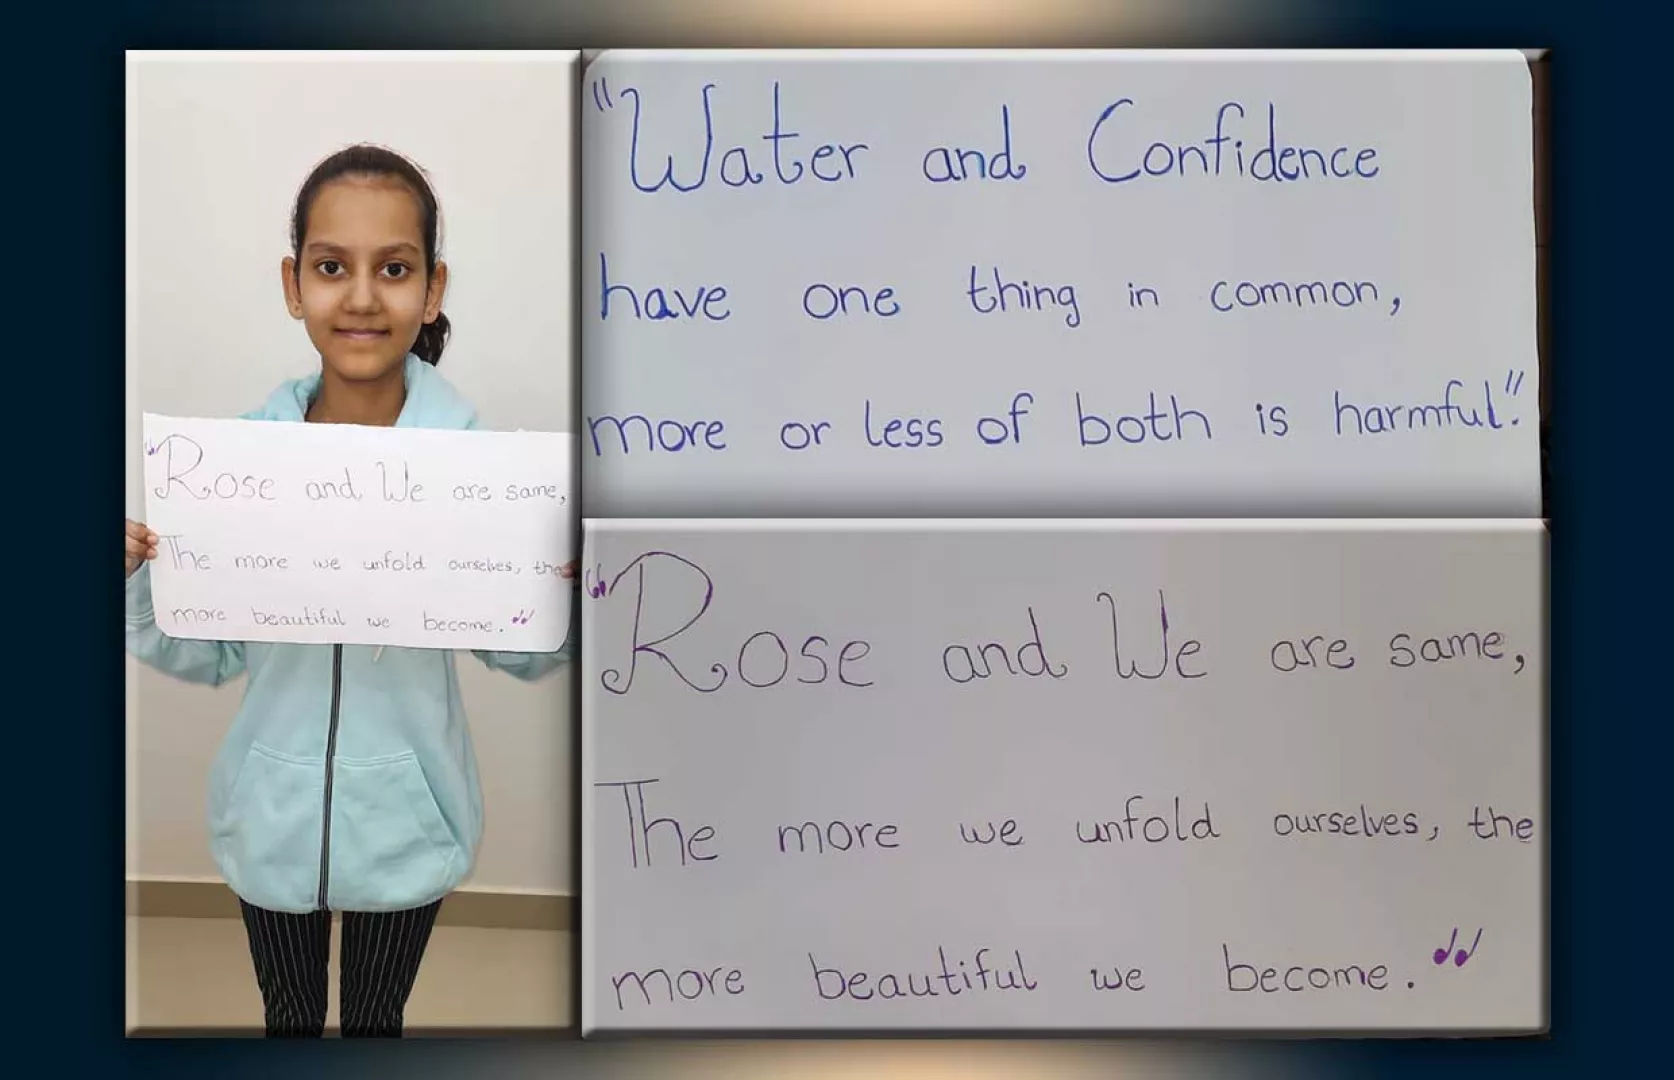 "Rose and We are same,
The more we unfold ourselves, the
more beautiful we become."
"Water and Confidence
have one thing in common,
more or less of both is harmful".
"Rose and We are same,
The more we unfold ourselves, the
more beautiful we become."